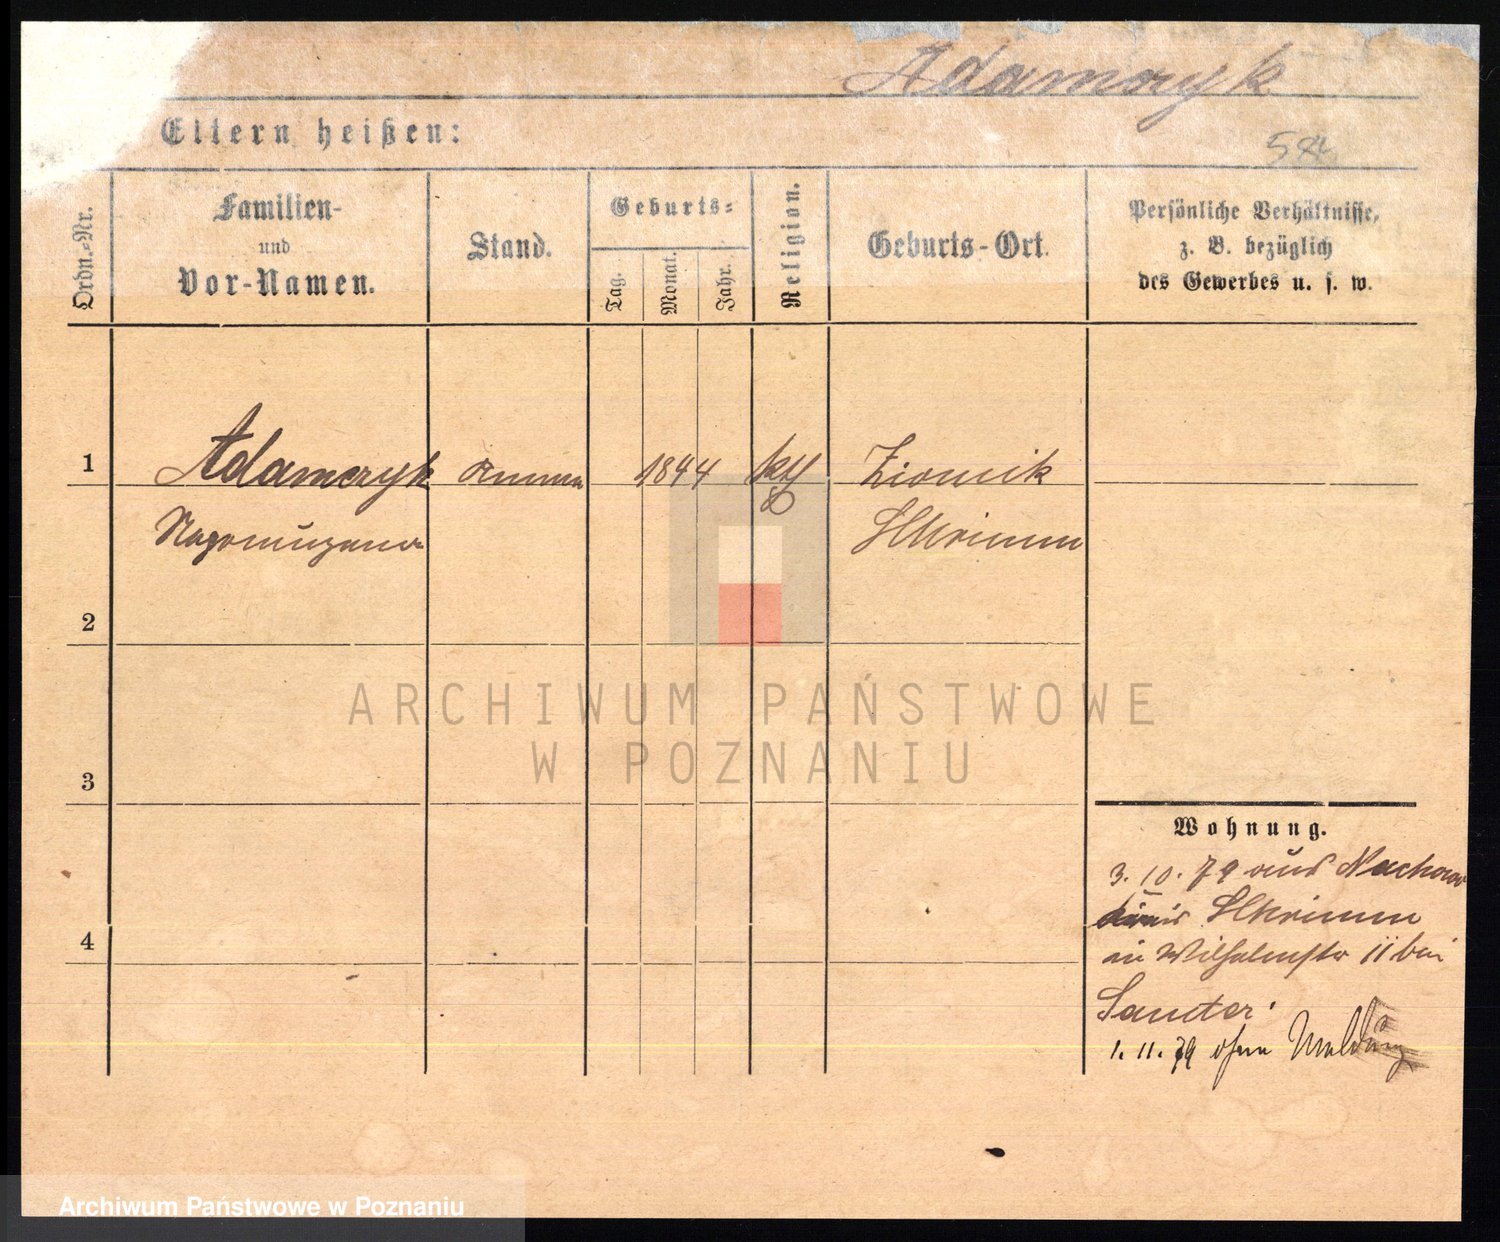 Adamczyk
Eltern heißen:
Ordn.-Nr.
Familien-
und
Vor-Namen.
Stand.
Geburts-
Tag.
Monat.
Jahr.
Religion.
Geburts-Ort.
Persönliche Verhältnisse,
z. B. bezüglich
des Gewerbes u. s. w.
1
Adamczyk
Amme
1844
kth
Zionik
Schrimm
2
3
4
Wohnung.
3. 10. 79 aus
Schrimm
in Wilhelmstr 11 bei
Sander.
1. 11. 79 ohne Meldung
ARCHIWUM PAŃSTWOWE
W POZNANIU
Archiwum Państwowe w Poznaniu